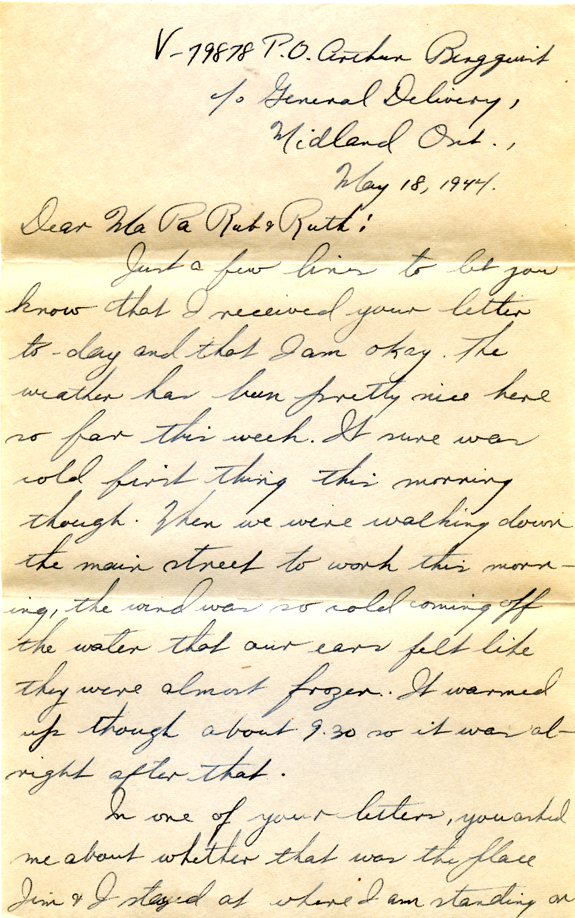 V-79878 P.O. Arthur Bergquist
c/o General Delivery,
Midland Ont.,
May 18, 1944.
Dear Ma Pa Rub & Ruth:
Just a few lines to let you
know that I received your letter
to-day and that I am okay. The
weather has been pretty nice here
so far this week. It sure was
cold first thing this morning
though. When we were walking down
the main street to work this morn-
ing, the wind was so cold coming off
the water that our ears felt like
they were almost frozen. It warmed
up though about 9.30 so it was al-
right after that.
In one of your letters, you asked
me about whether that was the place
Jim & I stayed at where I am standing on